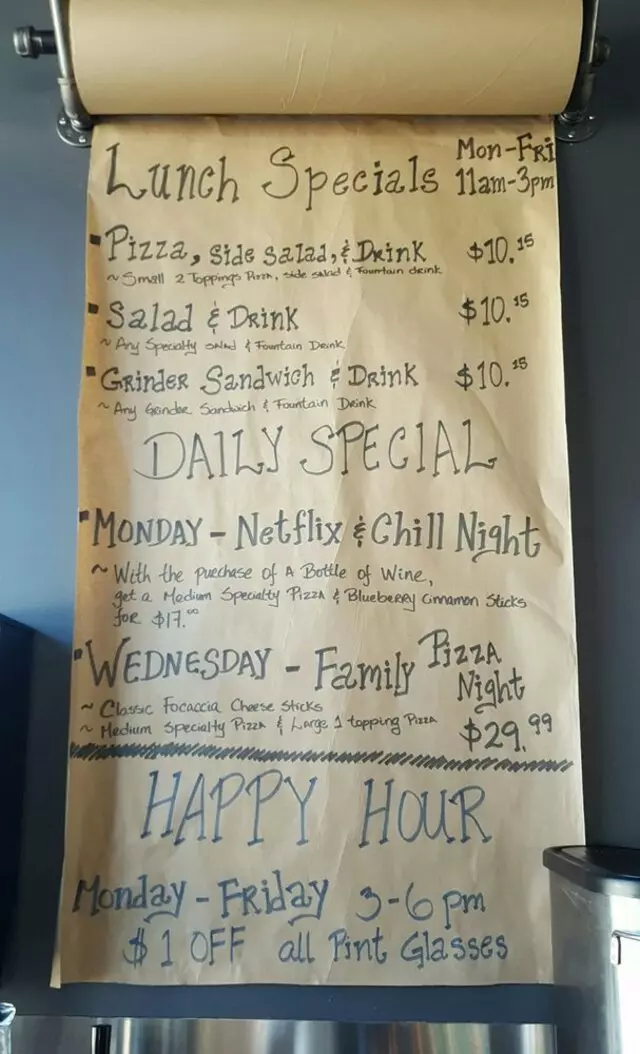 Lunch Specials Mon-Fri
11am-3pm
Pizza, Side Salad, & Drink $10.15
~ Small 2 Toppings Pizza, side salad & Fountain drink
Salad & Drink $10.15
~ Any Specialty salad & Fountain Drink
Grinder Sandwich & Drink $10.15
~ Any Grinder Sandwich & Fountain Drink
DAILY SPECIAL
MONDAY - Netflix & Chill Night
~ With the purchase of A Bottle of Wine,
get a Medium Specialty Pizza & Blueberry Cinnamon Sticks
for $17.00
WEDNESDAY - Family Pizza
Night
~ Classic Focaccia Cheese Sticks
~ Medium Specialty Pizza & Large 1 topping Pizza
$29.99
HAPPY HOUR
Monday - Friday 3-6pm
$1 OFF all Pint Glasses